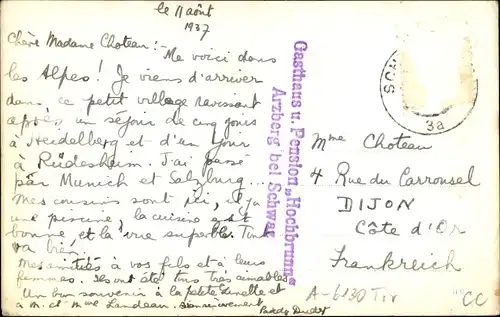 le 11 août
1937
Chère Madame Choteau: -
Me voici dans
les Alpes! Je viens d'arriver
dans ce petit village ravissant
après un séjour de cinq jours
à Heidelberg et d'un jour
à Rüdesheim. J'ai passé
par Munich et Salzburg...
Mes cousins sont ici, il y a
une piscine, la cuisine est
bonne et la vue superbe. Tout
va bien.
Mes amitiés à vos fels et à leurs
femmes. Ils ont été tous très aimables
Un bon souvenir à la petite
à M. et Mme Landeau. Bien sincèrement
Gasthaus u. Pension „Hochbrunn“
Arzberg bei Schwaz
SCH
3a
Mme Choteau
4 Rue du Carrousel
DIJON
Côte d'Or
Frankreich
A-6130 Tir
CC